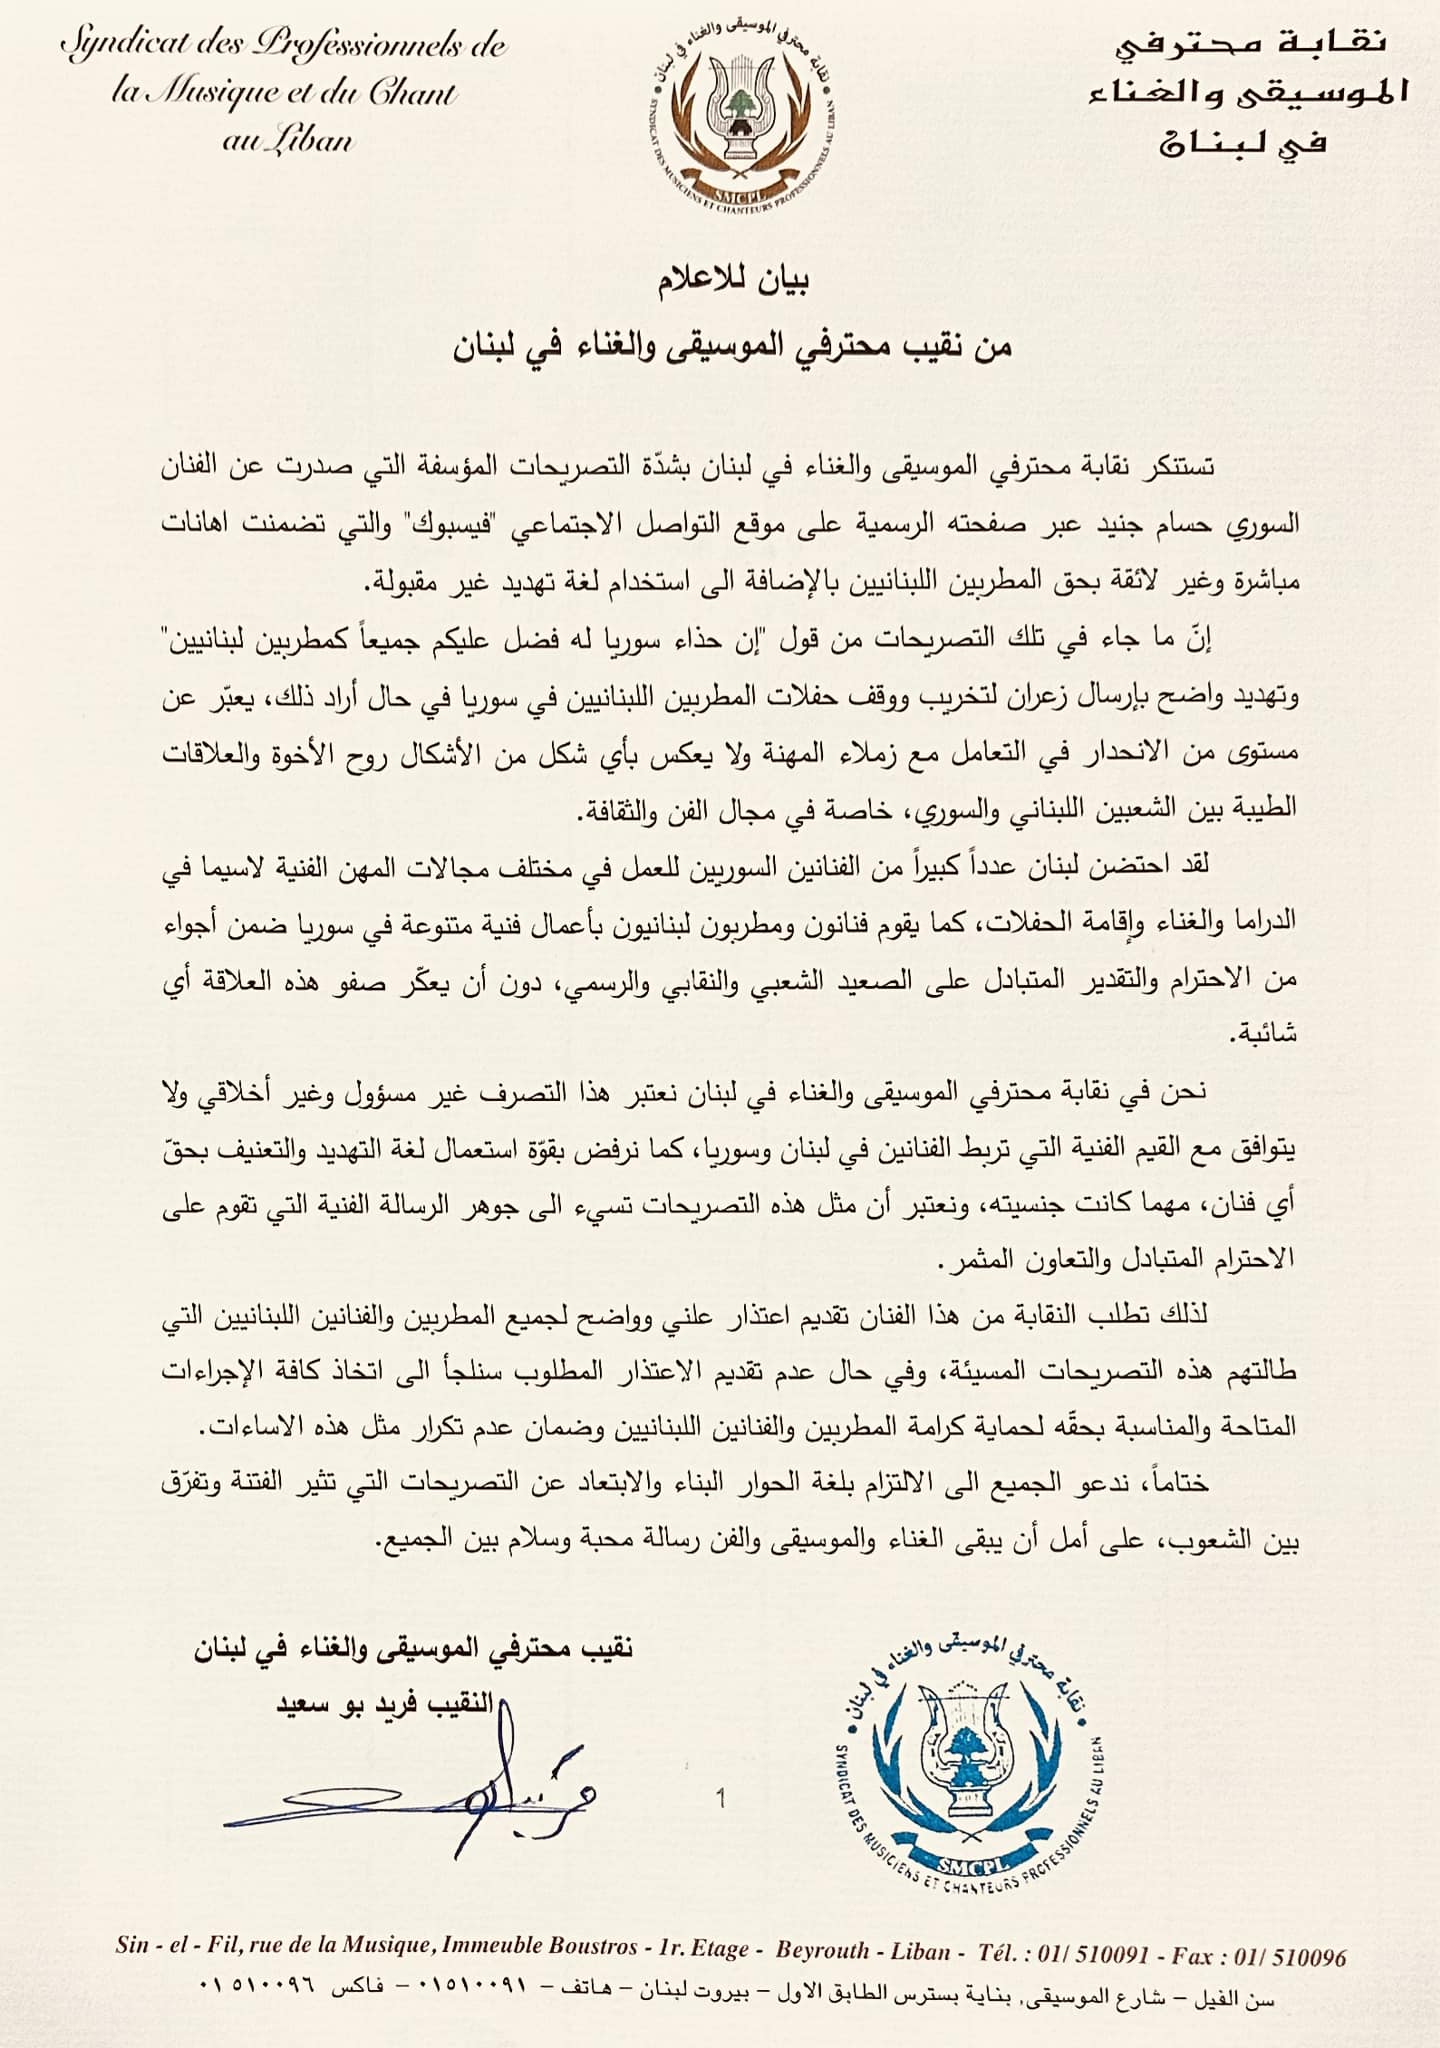 Syndicat des Professionnels de
la Musique et du Chant
au Liban
نقابة محترفي الموسيقى والغناء في لبنان
SYNDICAT DES MUSICIENS ET CHANTEURS PROFESSIONNELS AU LIBAN
SMCPL
نقابة محترفي
الموسيقى والغناء
في لبنان
بيان للاعلام
من نقيب محترفي الموسيقى والغناء في لبنان
تستنكر نقابة محترفي الموسيقى والغناء في لبنان بشدّة التصريحات المؤسفة التي صدرت عن الفنان
السوري حسام جنيد عبر صفحته الرسمية على موقع التواصل الاجتماعي "فيسبوك" والتي تضمنت اهانات
مباشرة وغير لائقة بحق المطربين اللبنانيين بالإضافة الى استخدام لغة تهديد غير مقبولة.
إنّ ما جاء في تلك التصريحات من قول "إن حذاء سوريا له فضل عليكم جميعاً كمطربين لبنانيين"
وتهديد واضح بإرسال زعران لتخريب ووقف حفلات المطربين اللبنانيين في سوريا في حال أراد ذلك، يعبّر عن
مستوى من الانحدار في التعامل مع زملاء المهنة ولا يعكس بأي شكل من الأشكال روح الأخوة والعلاقات
الطيبة بين الشعبين اللبناني والسوري، خاصة في مجال الفن والثقافة.
لقد احتضن لبنان عدداً كبيراً من الفنانين السوريين للعمل في مختلف مجالات المهن الفنية لاسيما في
الدراما والغناء وإقامة الحفلات، كما يقوم فنانون ومطربون لبنانيون بأعمال فنية متنوعة في سوريا ضمن أجواء
من الاحترام والتقدير المتبادل على الصعيد الشعبي والنقابي والرسمي، دون أن يعكّر صفو هذه العلاقة أي
شائبة.
نحن في نقابة محترفي الموسيقى والغناء في لبنان نعتبر هذا التصرف غير مسؤول وغير أخلاقي ولا
يتوافق مع القيم الفنية التي تربط الفنانين في لبنان وسوريا، كما نرفض بقوّة استعمال لغة التهديد والتعنيف بحقّ
أي فنان، مهما كانت جنسيته، ونعتبر أن مثل هذه التصريحات تسيء الى جوهر الرسالة الفنية التي تقوم على
الاحترام المتبادل والتعاون المثمر .
لذلك تطلب النقابة من هذا الفنان تقديم اعتذار علني وواضح لجميع المطربين والفنانين اللبنانيين التي
طالتهم هذه التصريحات المسيئة، وفي حال عدم تقديم الاعتذار المطلوب سنلجأ الى اتخاذ كافة الإجراءات
المتاحة والمناسبة بحقّه لحماية كرامة المطربين والفنانين اللبنانيين وضمان عدم تكرار مثل هذه الاساءات.
ختاماً، ندعو الجميع الى الالتزام بلغة الحوار البناء والابتعاد عن التصريحات التي تثير الفتنة وتفرّق
بين الشعوب، على أمل أن يبقى الغناء والموسيقى والفن رسالة محبة وسلام بين الجميع.
نقيب محترفي الموسيقى والغناء في لبنان
النقيب فريد بو سعيد
نقابة محترفي الموسيقى والغناء في لبنان
SYNDICAT DES MUSICIENS ET CHANTEURS PROFESSIONNELS AU LIBAN
SMCPL
1
Sin - el - Fil, rue de la Musique, Immeuble Boustros - 1r. Etage - Beyrouth - Liban - Tél. : 01/ 510091 - Fax : 01/ 510096
سن الفيل – شارع الموسيقى, بناية بسترس الطابق الاول – بيروت لبنان – هاتف – ٠١٥١٠٠٩١ – فاكس ٠١٥١٠٠٩٦